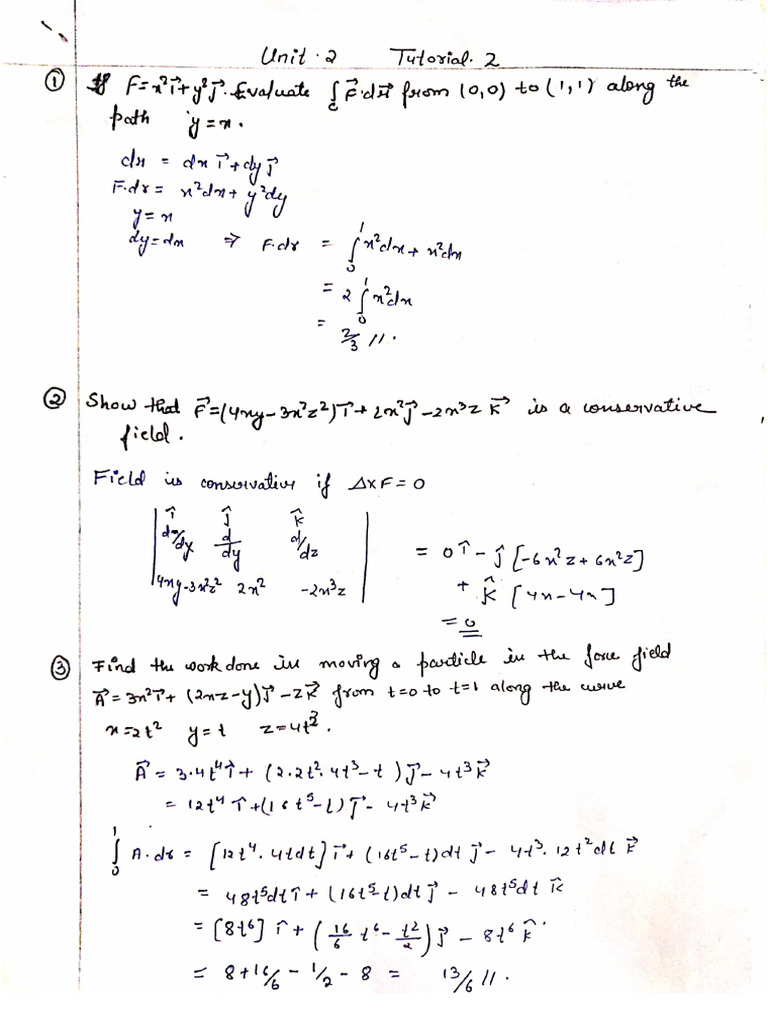 Unit.2 Tutorial.2
① If F=x²i⃗+y²j⃗. Evaluate ∫c F⃗.dr⃗ from (0,0) to (1,1) along the
path y=x.
dr = dx i⃗+dy j⃗
F.dr = x²dx+y²dy
y=x
dy=dx ⇒ F.dr = ∫₀¹ x²dx+x²dx
= 2∫₀¹ x²dx
= 2/3 //.
② Show that F⃗=(4xy-3x²z²)i⃗+2x²j⃗-2x³z k⃗ is a conservative
field.
Field is conservative if ΔxF=0
| î ĵ k̂ |
d/dy d/dz
4xy-3x²z² 2x² -2x³z
= 0î - ĵ[-6x²z+6x²z]
+ k̂[4x-4x]
= 0
③ Find the work done in moving a particle in the force field
A⃗=3x²i⃗+(2xz-y)j⃗-zk⃗ from t=0 to t=1 along the curve
x=2t² y=t z=4t³.
A⃗ = 3.4t⁴i⃗+(2.2t².4t³-t)j⃗-4t³k⃗
= 12t⁴i⃗+(16t⁵-t)j⃗-4t³k⃗
∫₀¹ A.dr = [12t⁴.4tdt]i⃗+(16t⁵-t)dt j⃗-4t³.12t²dt k⃗
= 48t⁵dt î+(16t⁵-t)dt j⃗-48t⁵dt k̂
= [8t⁶]î+(16/6 t⁶-t²/2)j⃗-8t⁶k̂
= 8+16/6-1/2-8 = 13/6 //.